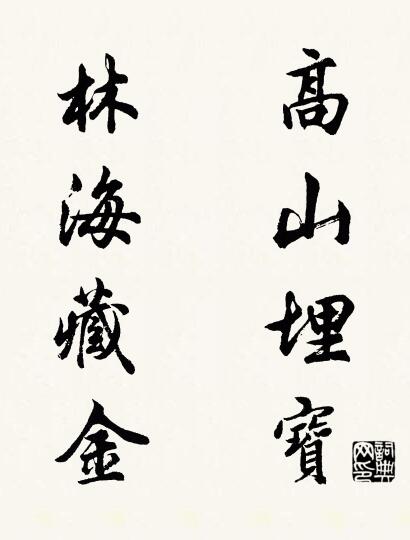 高山埋寶
林海藏金
詞典
网印